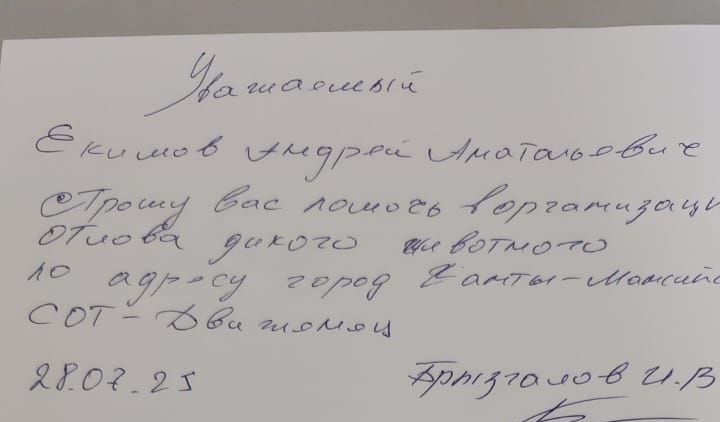 Уважаемый
Екимов Андрей Анатольевич
Прошу Вас помочь в организаци
отлова дикого животного
по адресу город Ханты-Мансийс
СОТ-
28.07.25 Брызгалов И.В